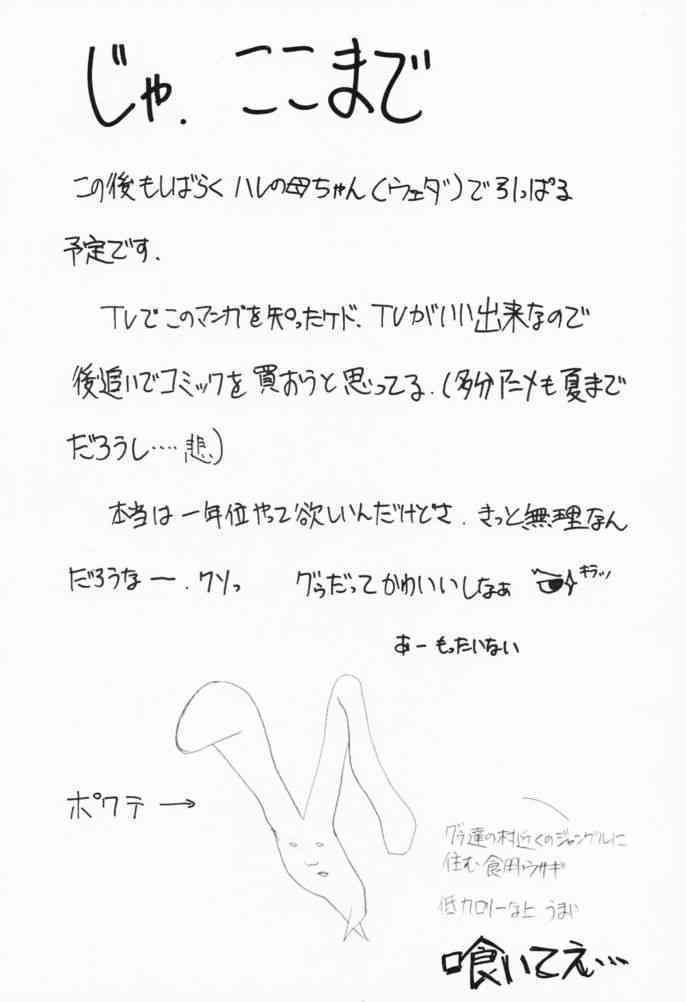 じゃ. ここまで
この後もしばらくハレの母ちゃん(ウェダ)で引っぱる
予定です.
TVでこのマンガを知ったケド. TVがいい出来なので
後追いでコミックを買おうと思ってる.(多分アニメも夏まで
だろうし‥‥悲)
本当は一年位やって欲しいんだけどさ. きっと無理なん
だろうなー. クソっ グゥだってかわいいしなぁ キラッ
あーもったいない
ポクテ→
グゥ達の村近くのジャングルに
住む食用ウサギ
低カロリーな上うまい
喰いてえ…